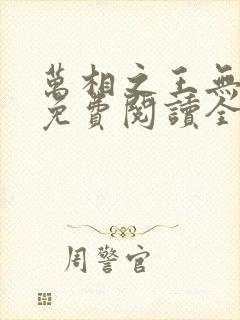 萬相之王無
免費閱讀全
周警官